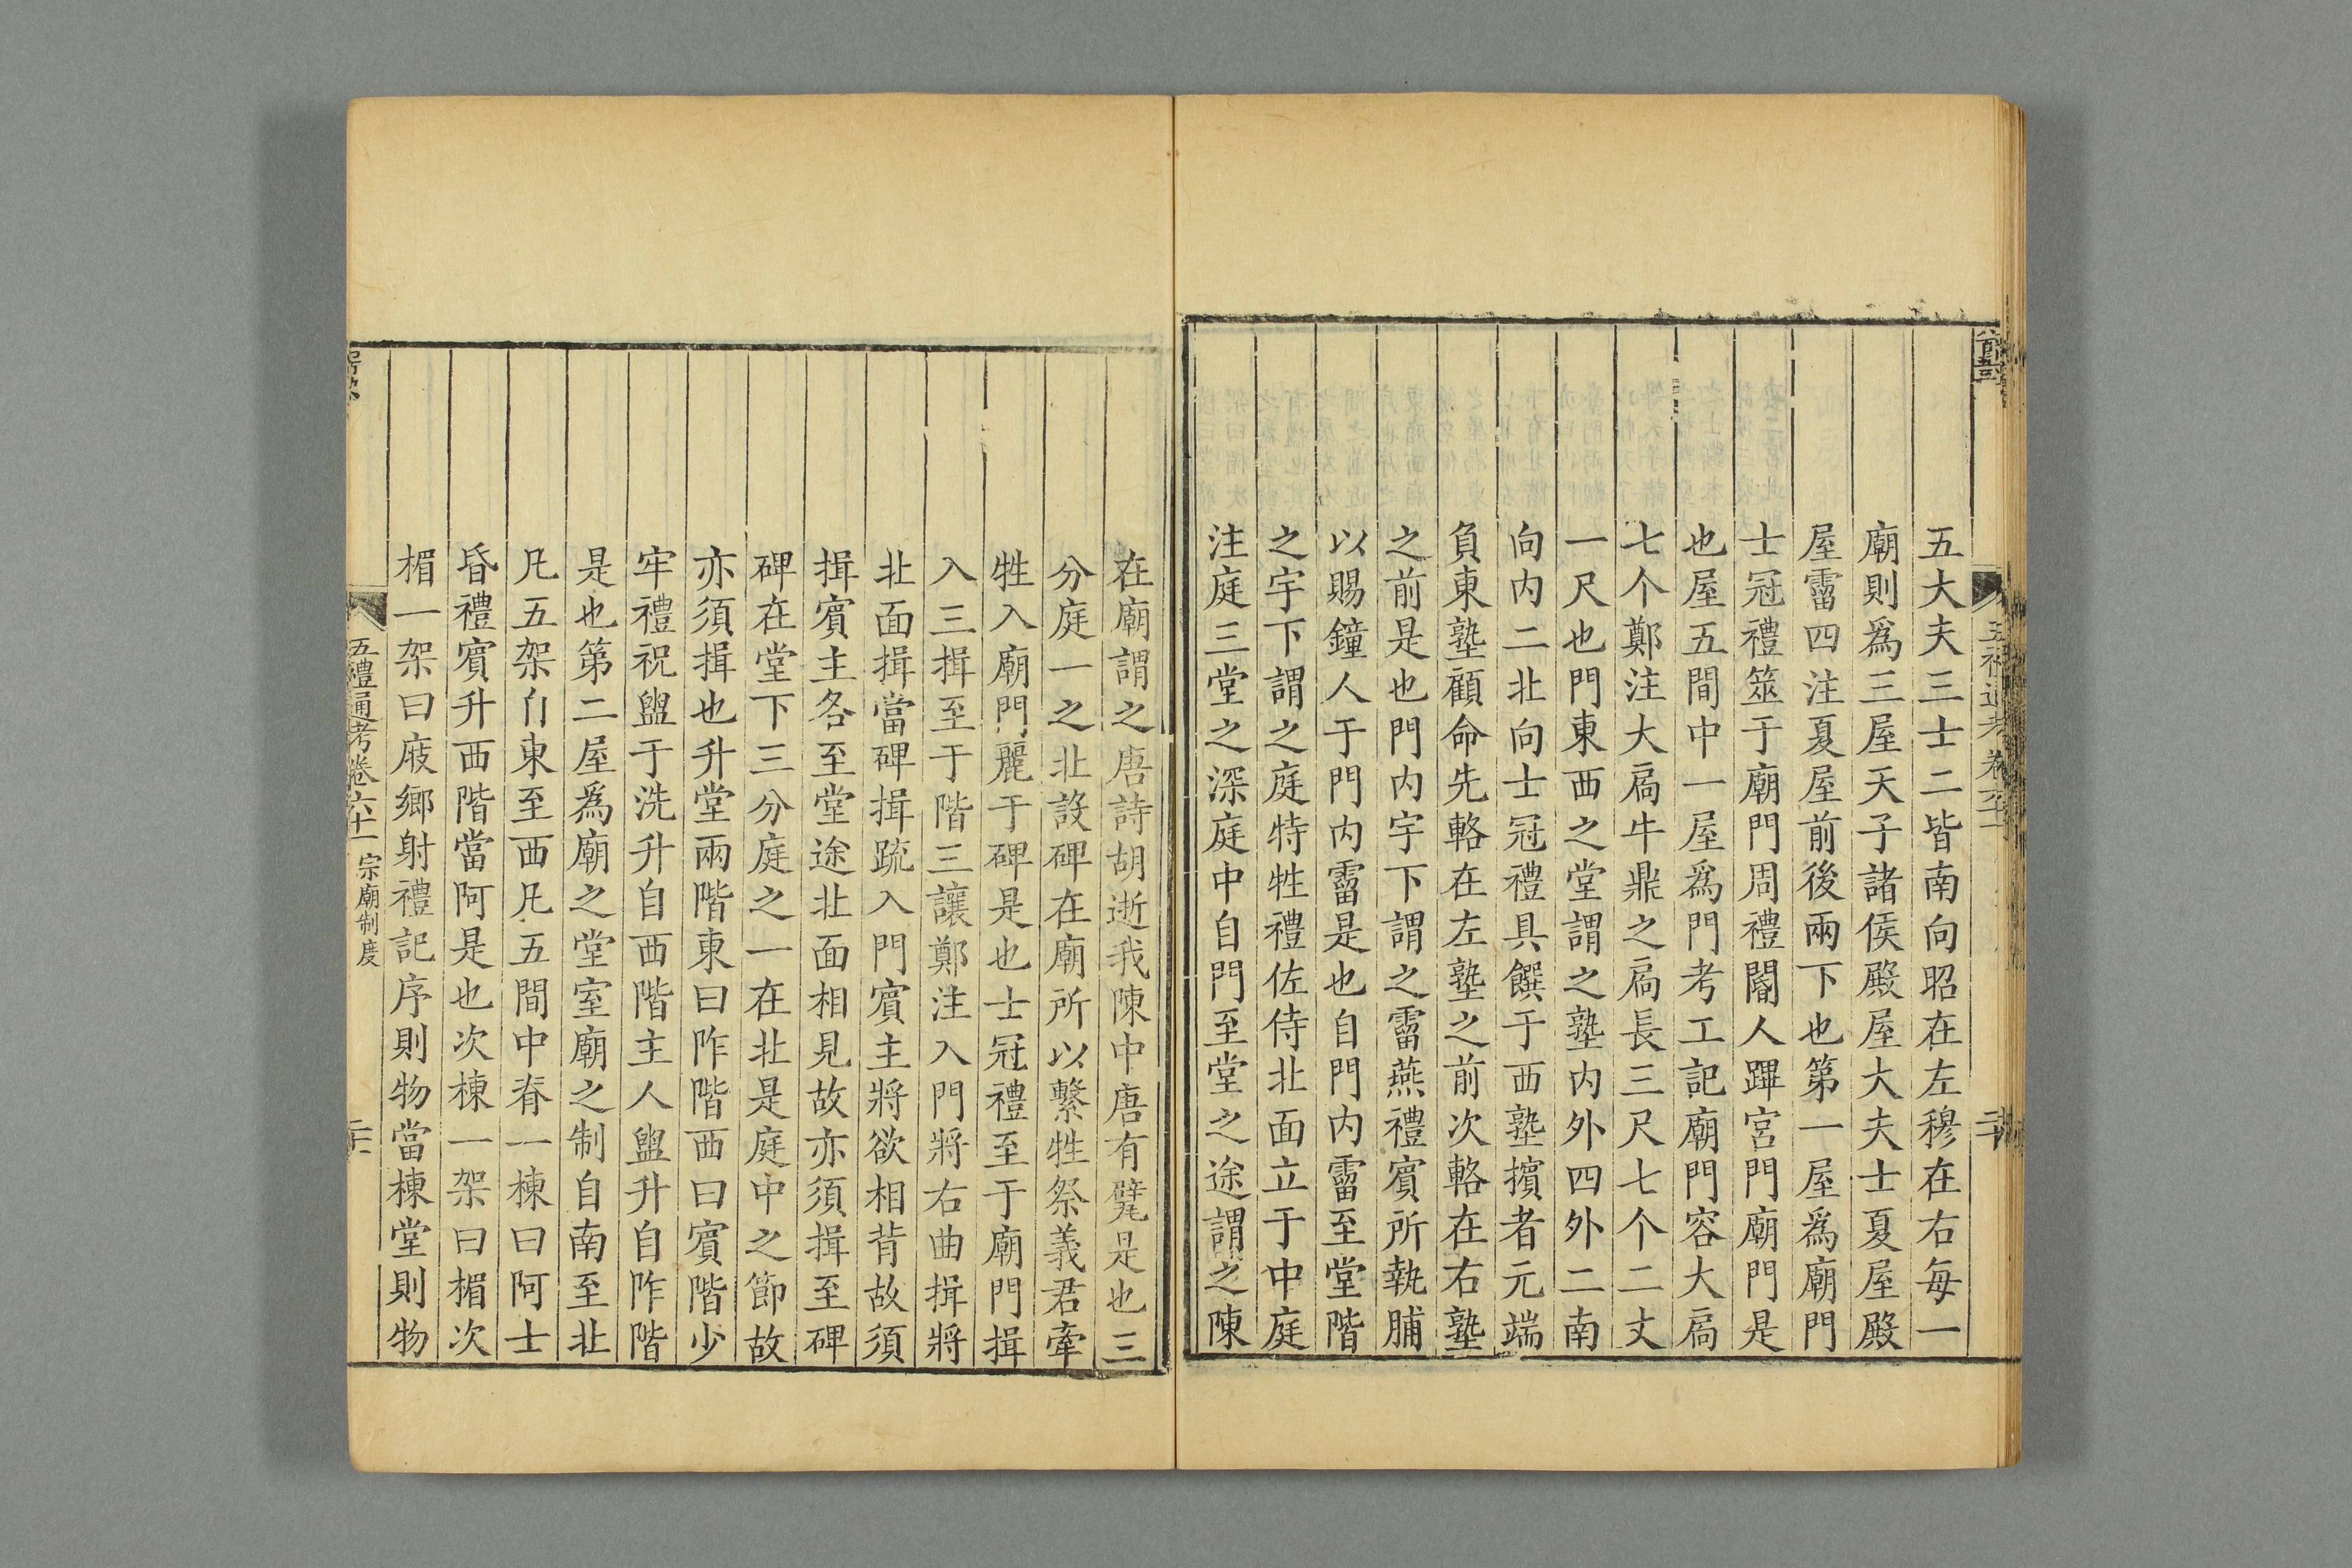 五大夫三士二皆南向昭在左穆在右每一
廟則爲三屋天子諸侯殿屋大夫士夏屋殿
屋霤四注夏屋前後兩下也第一屋爲廟門
士冠禮筮于廟門周禮閽人蹕宮門廟門是
也屋五間中一屋爲門考工記廟門容大扃
七个鄭注大扃牛鼎之扃長三尺七个二丈
一尺也門東西之堂謂之塾内外四外二南
向内二北向士冠禮具饌于西塾擯者元端
負東塾顧命先輅在左塾之前次輅在右塾
之前是也門内宇下謂之霤燕禮賓所執脯
以賜鐘人于門内霤是也自門内霤至堂階
之宇下謂之庭特牲禮佐侍北面立于中庭
注庭三堂之深庭中自門至堂之途謂之陳
在廟謂之唐詩胡逝我陳中唐有甓是也三
分庭一之北設碑在廟所以繫牲祭義君牽
牲入廟門麗于碑是也士冠禮至于廟門揖
入三揖至于階三讓鄭注入門將右曲揖將
北面揖當碑揖疏入門賓主將欲相背故須
揖賓主各至堂途北面相見故亦須揖至碑
碑在堂下三分庭之一在北是庭中之節故
亦須揖也升堂兩階東曰阼階西曰賓階少
牢禮祝盥于洗升自西階主人盥升自阼階
是也第二屋爲廟之堂室廟之制自南至北
凡五架自東至西凡五間中脊一棟曰阿士
昏禮賓升西階當阿是也次棟一架曰楣次
楣一架曰庪鄉射禮記序則物當棟堂則物
五禮通考卷六十一 宗廟制度